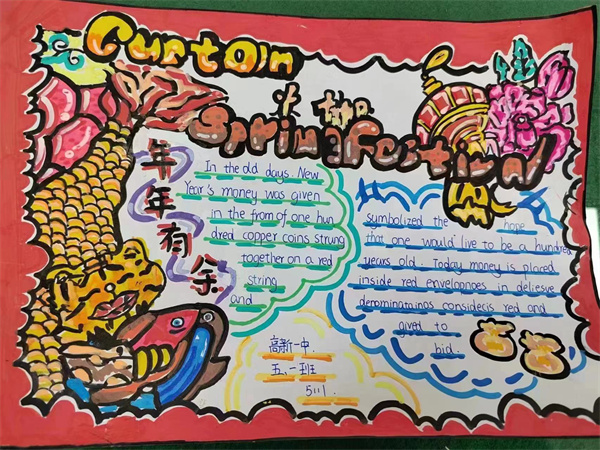 Curtoin
of the
Spring Festival
年年有余
In the old days. New
Year's money was given
in the from of one hun
dred copper coins strung
together on a red
string
and
symbolized the hope
that one would live to be a hundred
years old. Today money is placed
inside red enveloppoes in deliesve
denominatainas considecis red and
gived to
bid.
高新一中.
五.一班